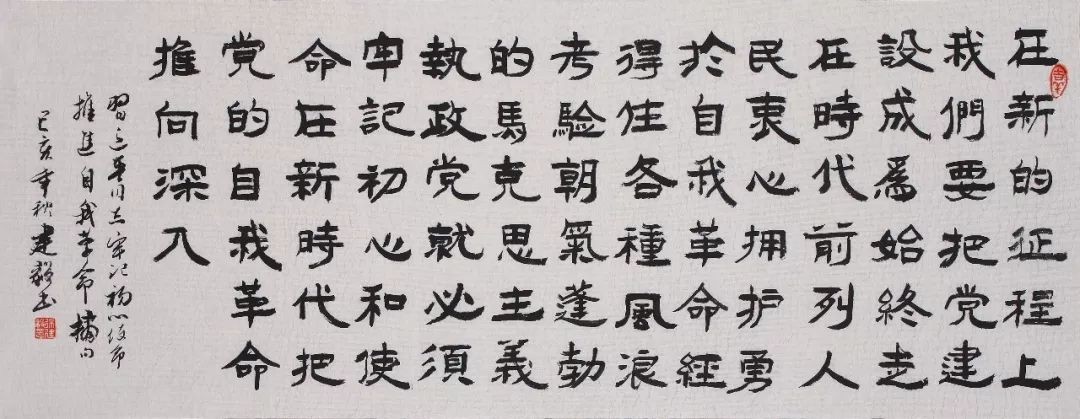 在新的征程上
我們要把党建
設成爲始終走
在時代前列人
民衷心拥护勇
於自我革命經
得住各種風浪
考驗朝氣蓬勃
的馬克思主義
執政党就必須
牢記初心和使
命在新時代把
党的自我革命
推向深入
習近平同志牢记初心使命
推進自我革命摘句
己亥年秋建书